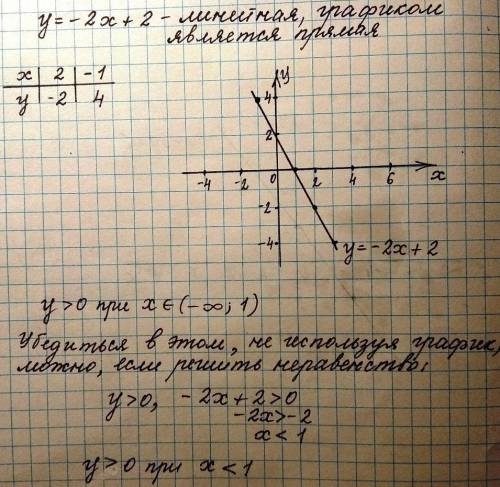 y = -2x + 2 - линейная, графиком
является прямая
x | 2 | -1
y | -2 | 4
y
4
2
-4 -2 0 2 4 6 x
-2
-4
y = -2x + 2
y > 0 при x ∈ (-∞; 1)
Убедиться в этом, не используя график,
можно, если решить неравенство:
y > 0, -2x + 2 > 0
-2x > -2
x < 1
y > 0 при x < 1